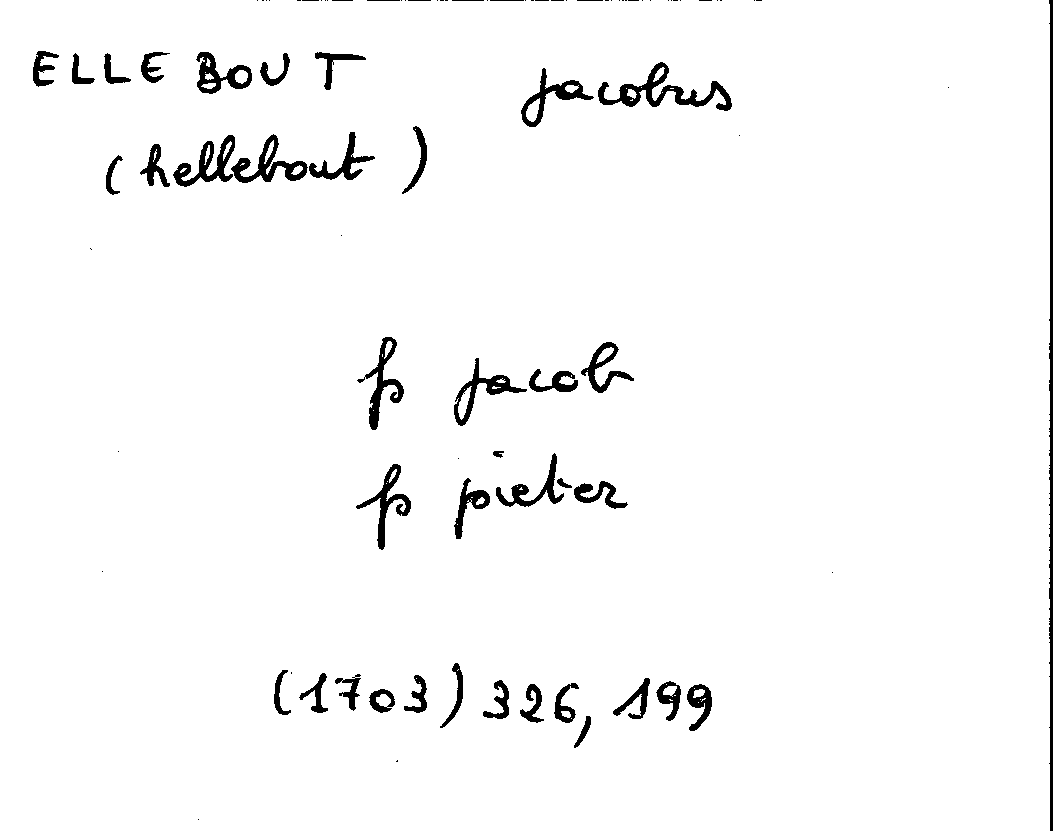 ELLEBOUT jacobus
(hellebout)
fs jacob
fs pieter
(1703) 326, 199